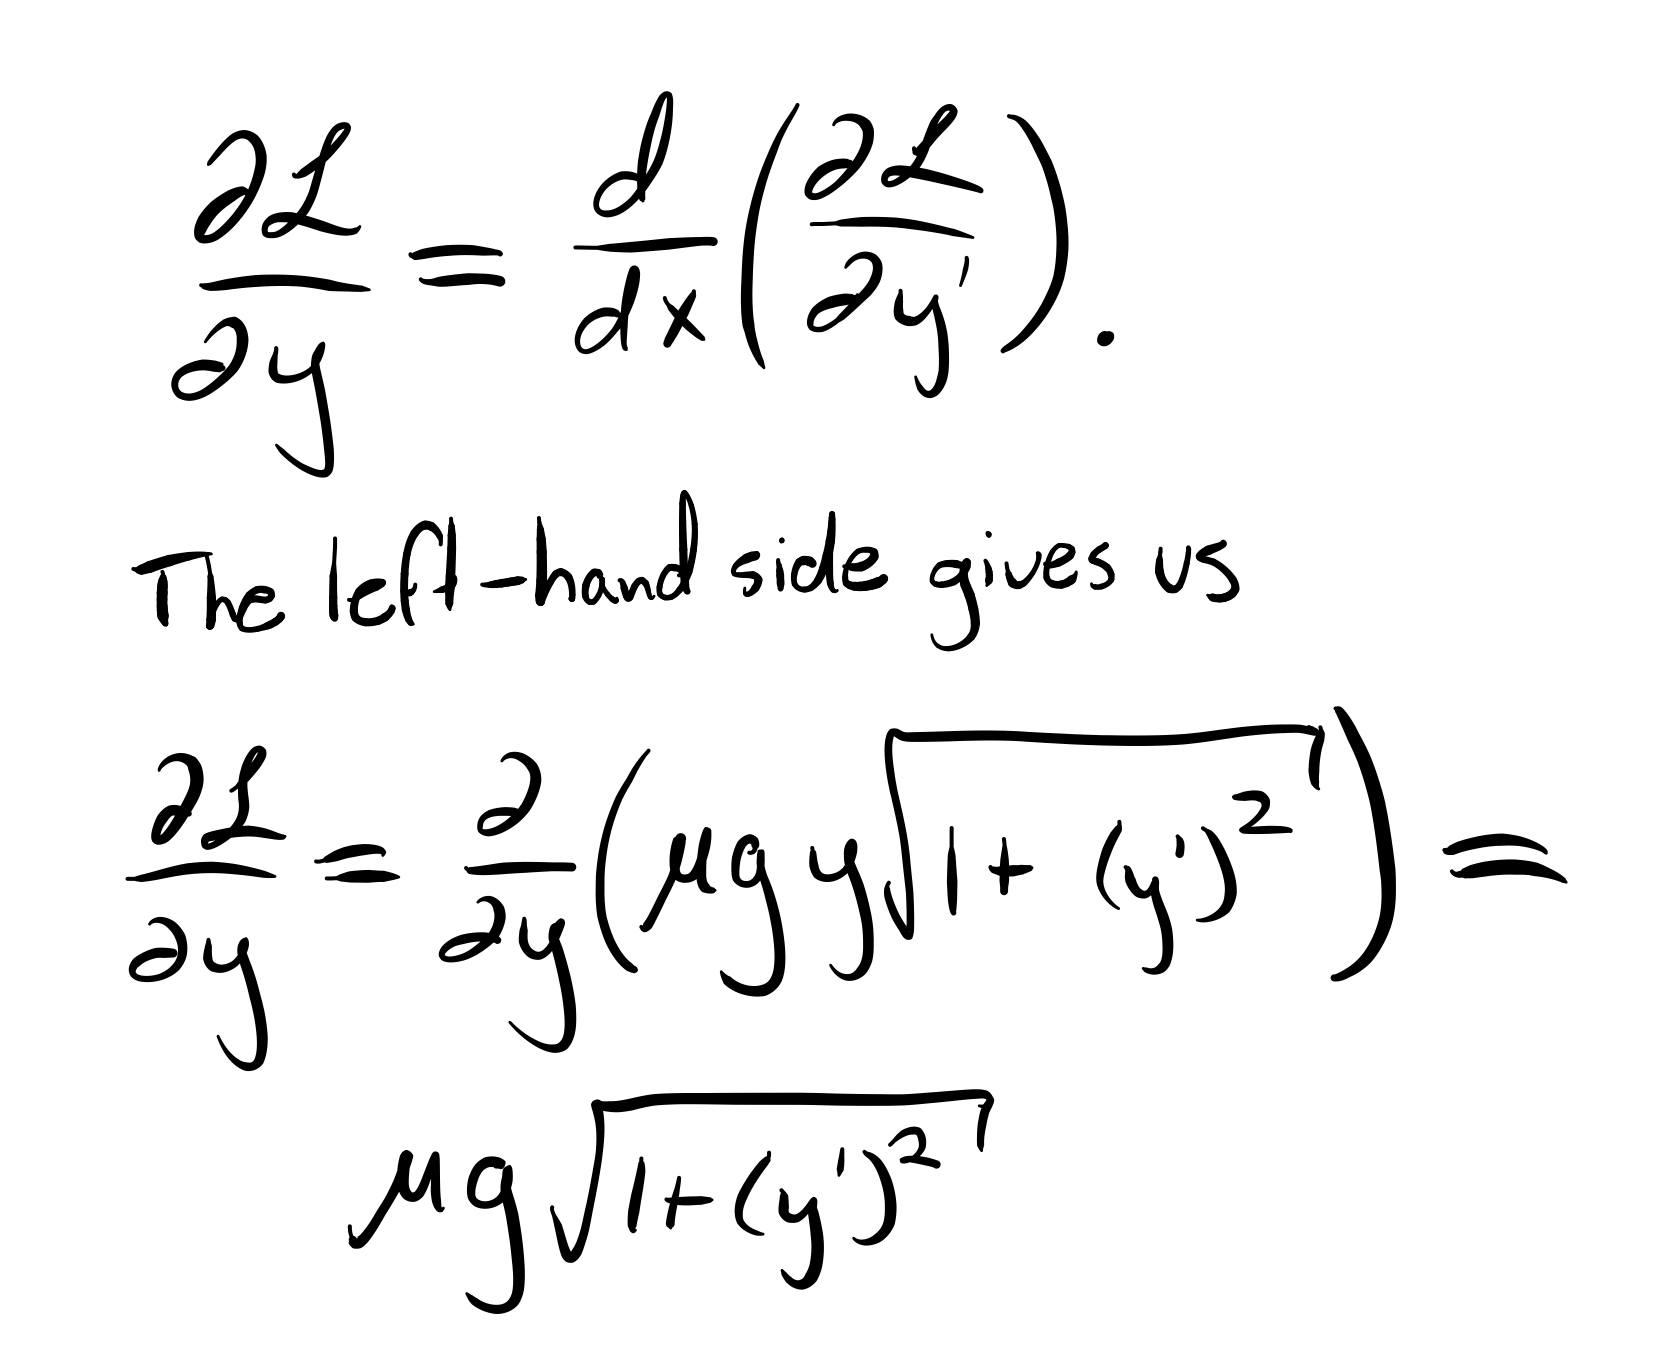 ∂ℒ/∂y = d/dx (∂ℒ/∂y').
The left-hand side gives us
∂ℒ/∂y = ∂/∂y (μgy√(1 + (y')²)) =
μg√(1+(y')²)